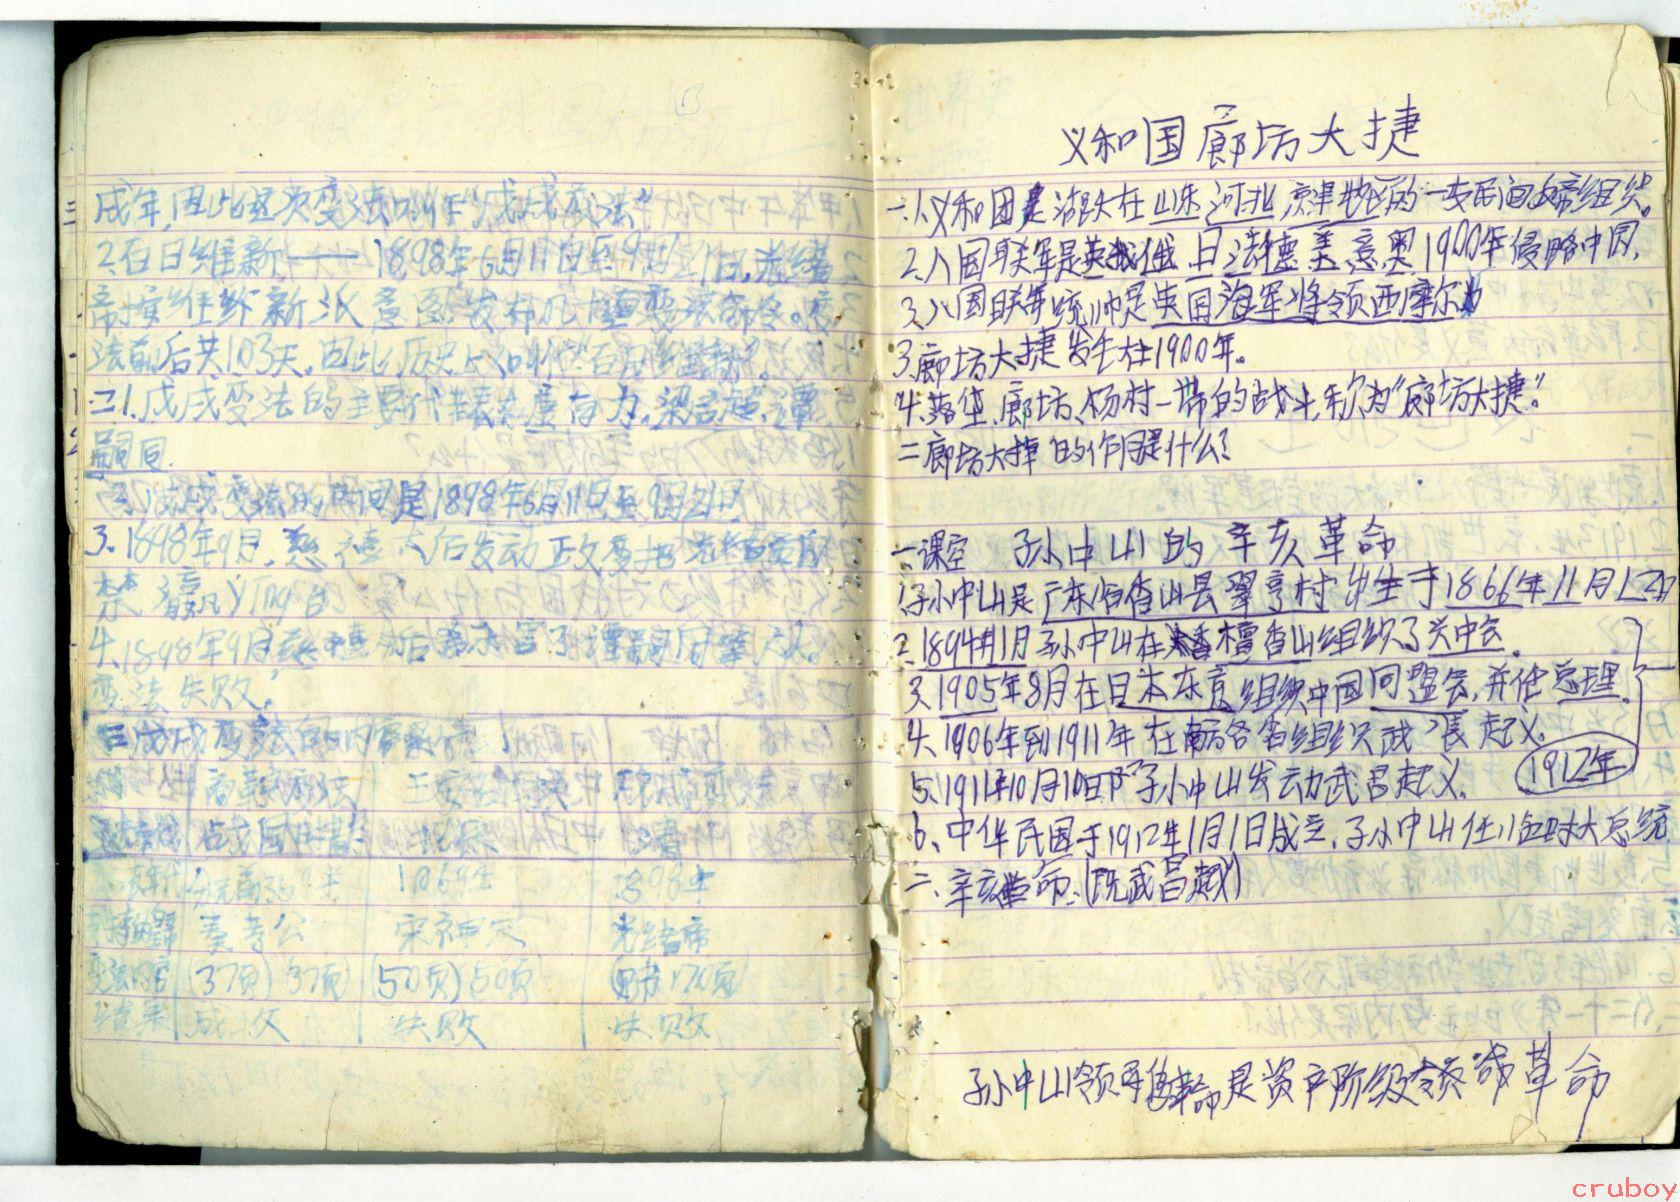 戌年,因此这次变法叫作“戊戌变法”
2.百日维新——1898年6月11日至9月21日,光绪
帝按维新派意图发布几十道变法命令。变
法前后共103天,因此历史上又叫作“百日维新”。
二1.戊戌变法的主要代表是康有为,梁启超,谭
嗣同.
3.戊戌变法的时间是1898年6月11日至9月21日
3.1898年9月,慈禧太后发动政变把光绪
禁 瀛 yíng台
4.1898年9月 后 杀害了谭嗣同等六人。
变法失败.
三戊戌变法的内容
商鞅变法 王安石 戊戌变法
公元前359年 1069年 1898年
秦孝公 宋神宗 光绪帝
变法内容 (37页) 37页 (50页) 50页 170页
结果 成功 失败 失败
义和国廊坊大捷
一.1.义和团是活跃在山东河北京津地区的一支民间组织。
2.八国联军是英俄日法德美意奥1900年侵略中国,
3.八国联军统帅是英国海军将领西摩尔
3.廊坊大捷发生在1900年。
4.落垡、廊坊、杨村一带的战斗,称为“廊坊大捷。”
二廊坊大捷的作用是什么?
一课空 孙中山的辛亥革命
1.孙中山是广东省香山县翠亨村出生于1866年11月12日
2.1894年11月孙中山在檀香山组织了兴中会。
3.1905年8月在日本东京组织中国同盟会,并任总理。
4.1906年到1911年在南方各省组织武装起义。
1912年
5.1911年10月10日 孙中山发动武昌起义.
6、中华民国于1912年1月1日成立,孙中山任临时大总统
二、辛亥革命.(既武昌起义)
孙中山领导的革命是资产阶级 革命